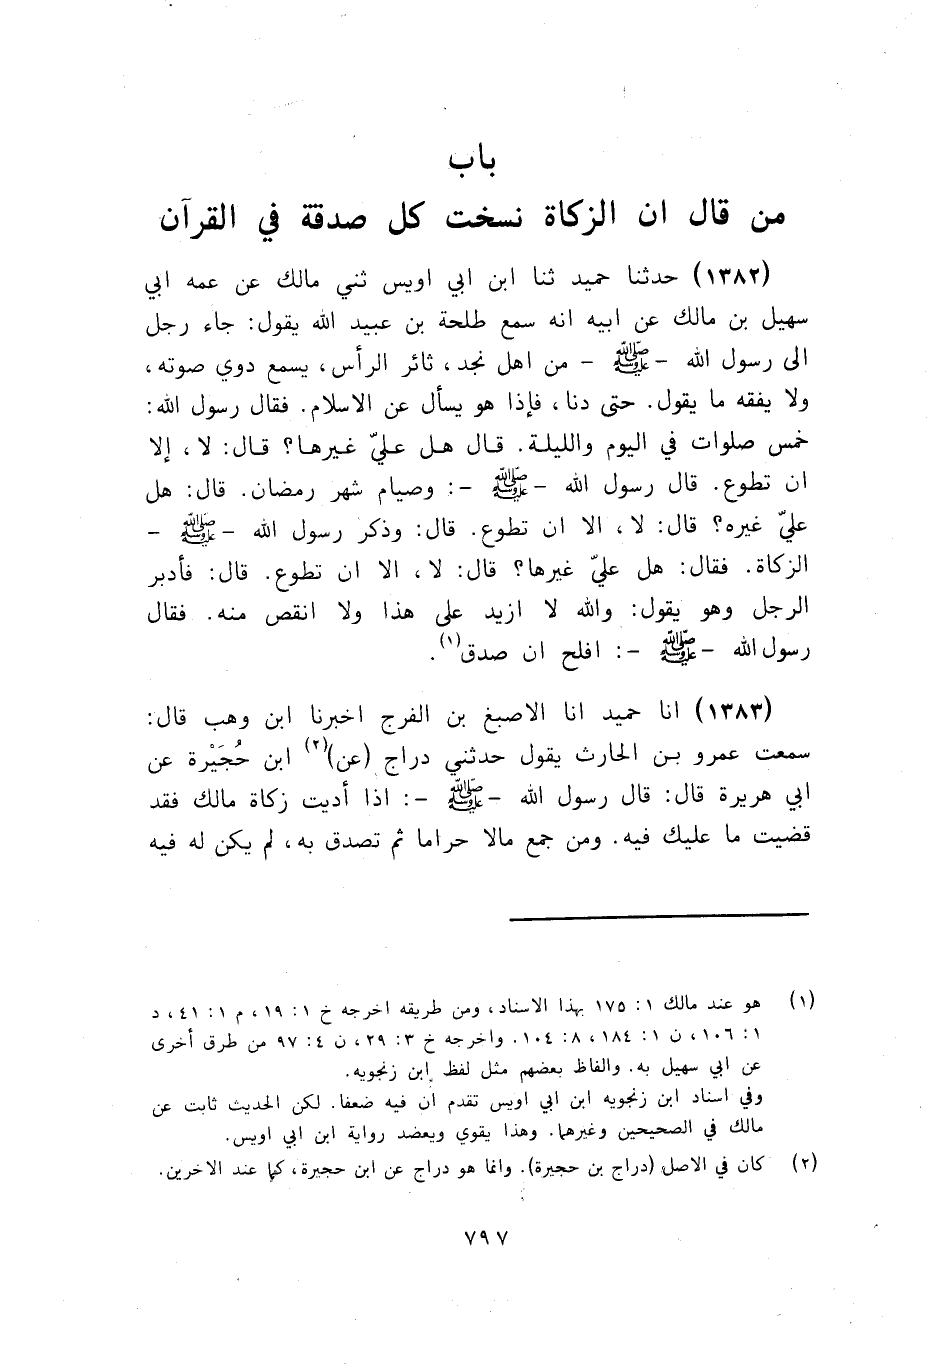 باب
من قال ان الزكاة نسخت كل صدقة في القرآن
(١٣٨٢) حدثنا حميد ثنا ابن ابي اويس ثني مالك عن عمه ابي
سهيل بن مالك عن ابيه انه سمع طلحة بن عبيد الله يقول: جاء رجل
الى رسول الله - ﷺ - من اهل نجد، ثائر الرأس، يسمع دوي صوته،
ولا يفقه ما يقول. حتى دنا، فإذا هو يسأل عن الاسلام. فقال رسول الله:
خمس صلوات في اليوم والليلة. قال هل عليّ غيرها؟ قال: لا، إلا
ان تطوع. قال رسول الله - ﷺ -: وصيام شهر رمضان. قال: هل
عليّ غيره؟ قال: لا، الا ان تطوع. قال: وذكر رسول الله - ﷺ -
الزكاة. فقال: هل عليّ غيرها؟ قال: لا، الا ان تطوع. قال: فأدبر
الرجل وهو يقول: والله لا ازيد على هذا ولا انقص منه. فقال
رسول الله - ﷺ -: افلح ان صدق(١).
(١٣٨٣) انا حميد انا الاصبغ بن الفرج اخبرنا ابن وهب قال:
سمعت عمرو بن الحارث يقول حدثني دراج (عن)(٢) ابن حُجَيْرة عن
ابي هريرة قال: قال رسول الله - ﷺ -: اذا أديت زكاة مالك فقد
قضيت ما عليك فيه. ومن جمع مالا حراما ثم تصدق به، لم يكن له فيه
(١) هو عند مالك ١: ١٧٥ بهذا الاسناد، ومن طريقه اخرجه خ ١: ١٩، م ١: ٤١، د
١: ١٠٦، ن ١: ١٨٤، ٨: ١٠٤. واخرجه خ ٣: ٢٩، ن ٤: ٩٧ من طرق أخرى
عن ابي سهيل به. والفاظ بعضهم مثل لفظ ابن زنجويه.
وفي اسناد ابن زنجويه ابن ابي اويس تقدم ان فيه ضعفا. لكن الحديث ثابت عن
مالك في الصحيحين وغيرهما. وهذا يقوي ويعضد رواية ابن ابي اويس.
(٢) كان في الاصل (دراج بن حجيرة). وانما هو دراج عن ابن حجيرة، كما عند الاخرين.
٧٩٧